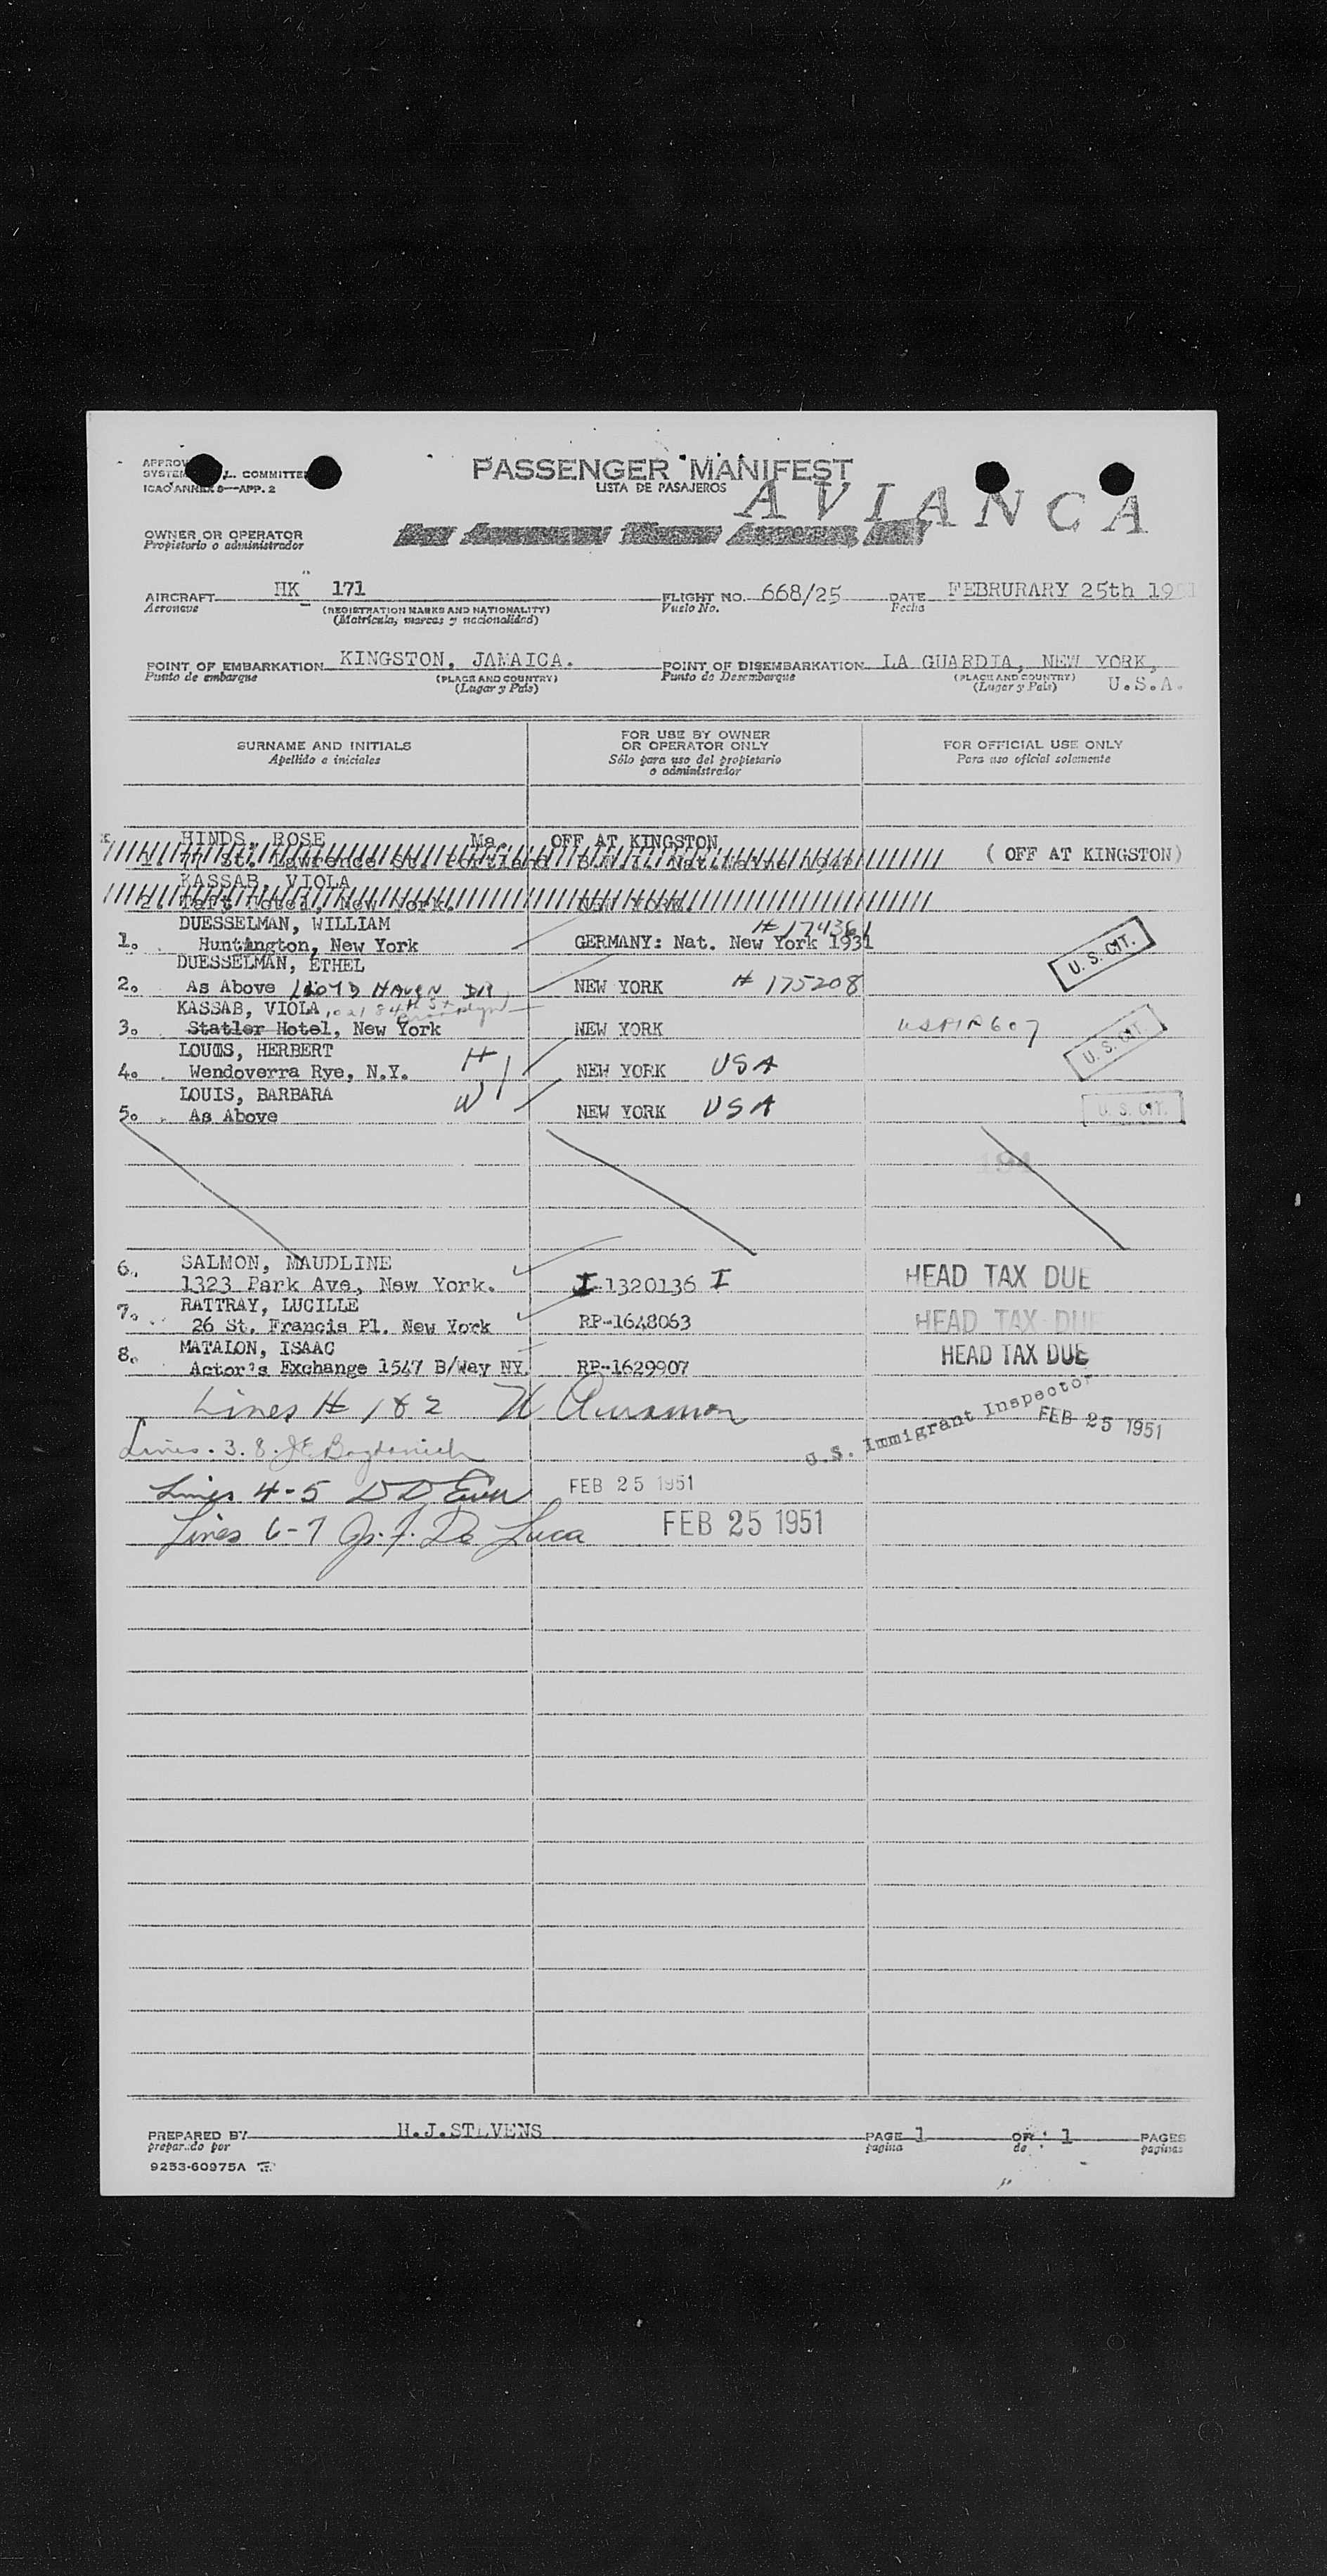 PASSENGER MANIFEST
LISTA DE PASAJEROS
COMMITTEE
ICAO ANNEX 9—APP. 2
AVIANCA
OWNER OR OPERATOR
Propietario o administrador
AIRCRAFT HK 171 FLIGHT NO. 668/25 DATE FEBRURARY 25th 1951
Aeronave (REGISTRATION MARKS AND NATIONALITY) Vuelo No. Fecha
(Matrícula, marcas y nacionalidad)
POINT OF EMBARKATION KINGSTON, JAMAICA. POINT OF DISEMBARKATION LA GUARDIA, NEW YORK,
Punto de embarque (PLACE AND COUNTRY) Punto de Desembarque (PLACE AND COUNTRY) U.S.A.
(Lugar y País) (Lugar y País)
SURNAME AND INITIALS FOR USE BY OWNER OR OPERATOR ONLY FOR OFFICIAL USE ONLY
Apellido e iniciales Sólo para uso del propietario o administrador Para uso oficial solamente
HINDS, ROSE Ma. OFF AT KINGSTON
1. 77 St. Lawrence St. Portland B.W.I. Nat. Maine ( OFF AT KINGSTON)
KASSAB, VIOLA
2. Taft Hotel, New York. NEW YORK.
DUESSELMAN, WILLIAM # 174361
1. Huntington, New York GERMANY: Nat. New York 1931 U.S. CIT.
DUESSELMAN, ETHEL
2. As Above HAVEN DR NEW YORK # 175208
KASSAB, VIOLA 84th St Brooklyn
3. Statler Hotel, New York NEW YORK
LOUIS, HERBERT H
4. Wendoverra Rye, N.Y. NEW YORK USA U.S. CIT.
LOUIS, BARBARA W
5. As Above NEW YORK USA U.S. CIT.
194
SALMON, MAUDLINE
6. 1323 Park Ave, New York. I-1320136 I HEAD TAX DUE
RATTRAY, LUCILLE
7. 26 St. Francis Pl. New York RP-1648063 HEAD TAX DUE
MATALON, ISAAC
8. Actor's Exchange 1547 B/Way NY. RP-1629907 HEAD TAX DUE
Lines # 1 & 2
U.S. Immigrant Inspector FEB 25 1951
Lines. 3. 8. J E Bogdanich
Lines 4-5 FEB 25 1951
Lines 6-7 De Luca FEB 25 1951
PREPARED BY H.J.STEVENS PAGE 1 OF 1 PAGES
preparado por pagina de paginas
9253-60975A